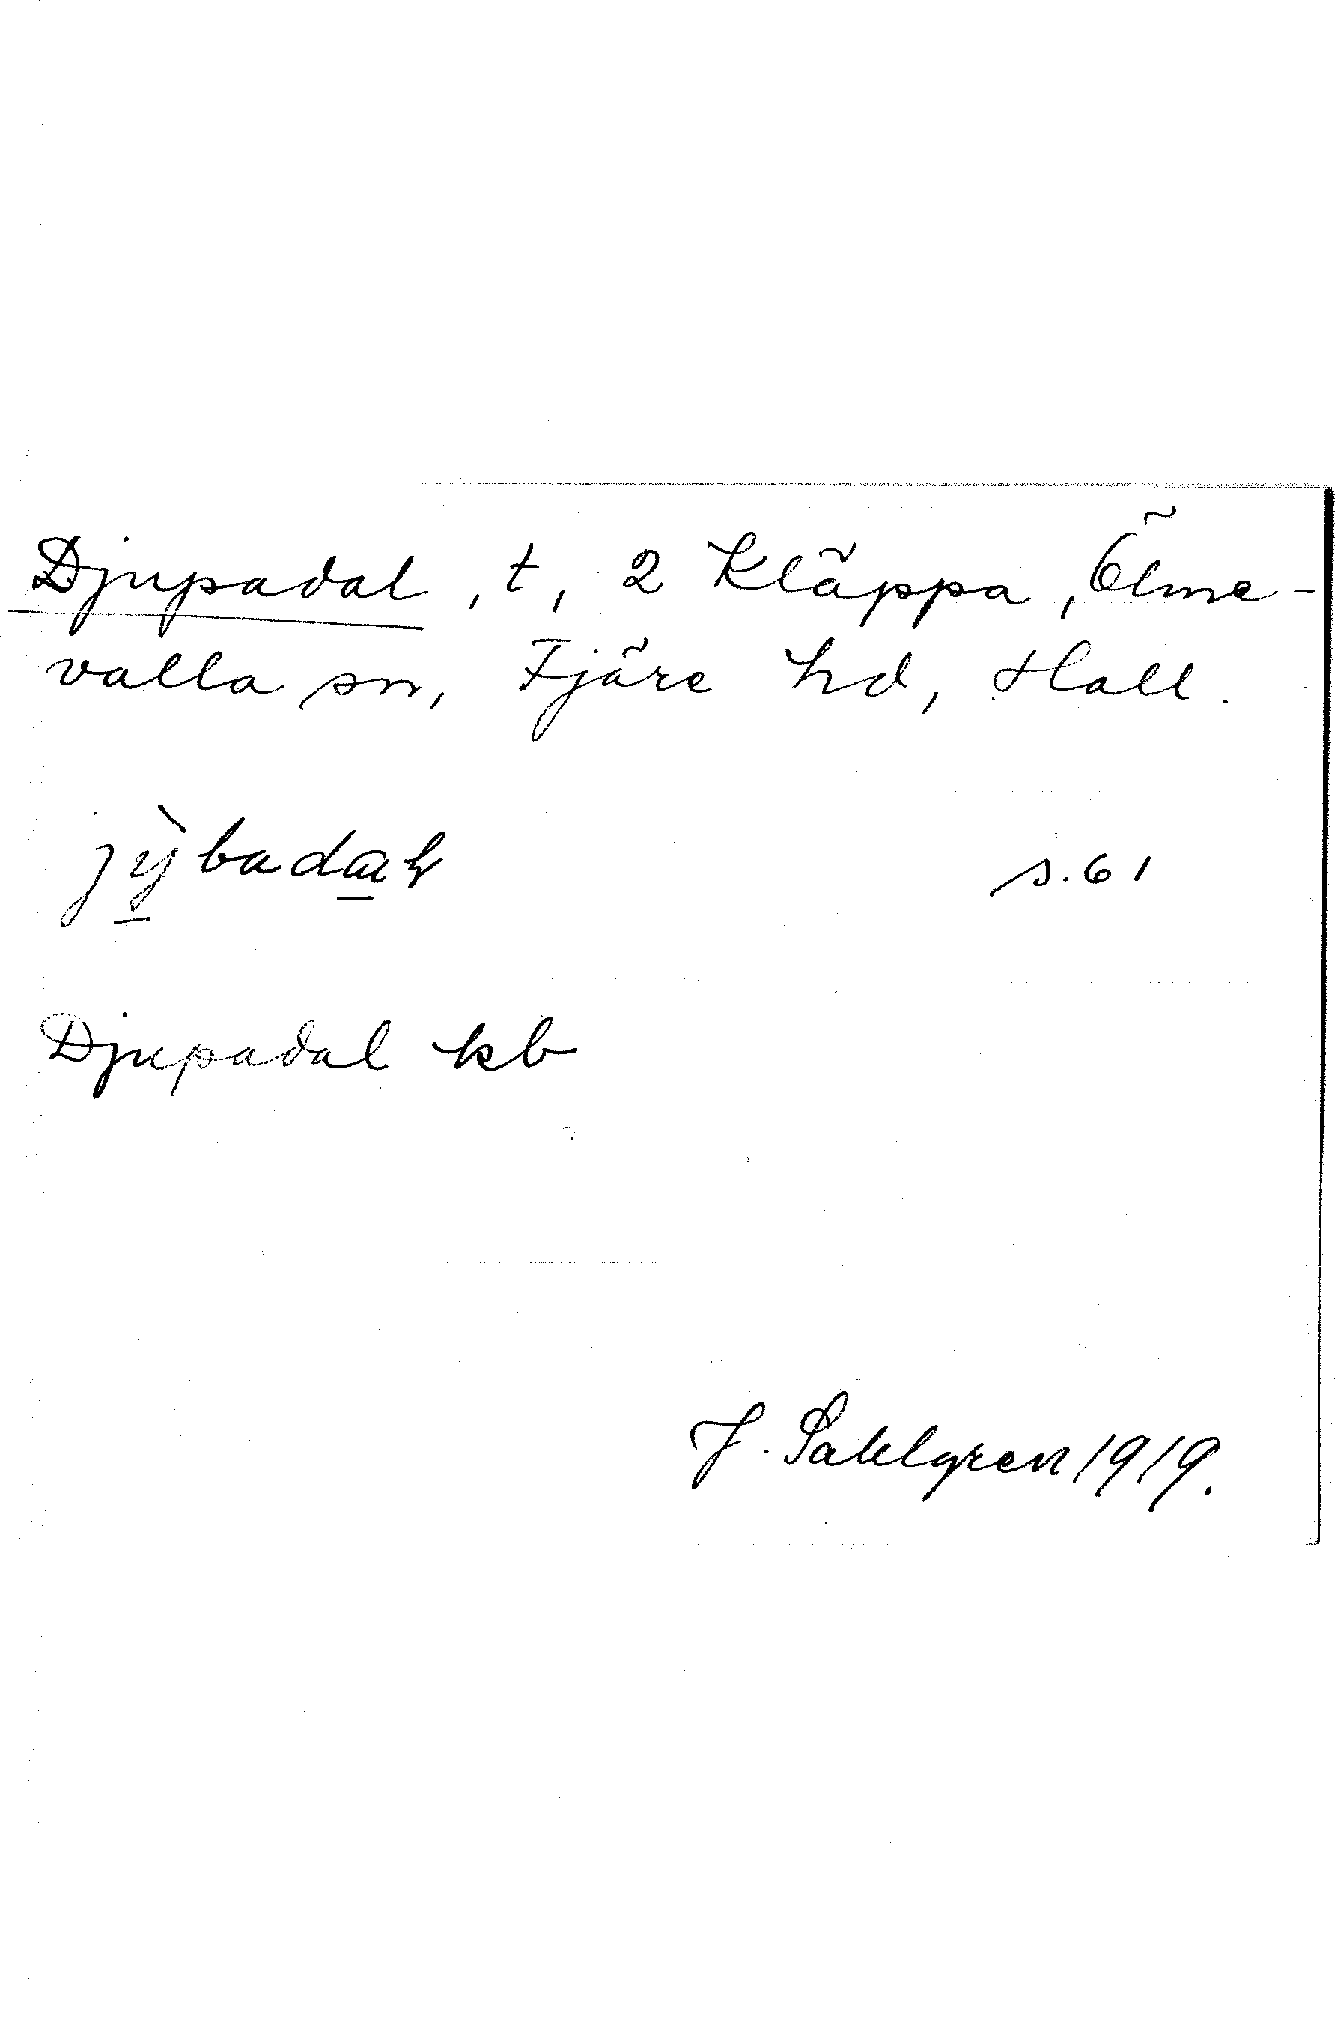 Djupadal, t, 2 Kläppa, Ölme-
valla sn, Fjäre hd, Hall.
jỳbadaɫ s. 61
Djupadal kb
J. Sahlgren 1919.